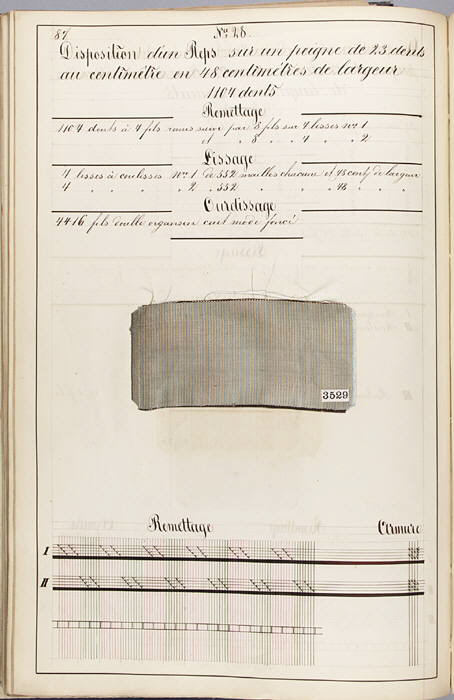 87
Nº 28.
Disposition d'un Reps sur un peigne de 23 dents
au centimètre en 48 centimètres de largeur
1104 dents
Remettage
1104 dents à 4 fils suivi par 8 fils sur 4 lisses nº 1
et " 8 " 4 " " 2
Lissage
4 lisses à coulisses Nº 1 de 552 mailles chacune et 48 cent de largeur
4 " " " 2 " 552 " " " 48 " "
Ourdissage
4416 fils double organsin cuit mode foncé
3529
Remettage
Armure
I
II